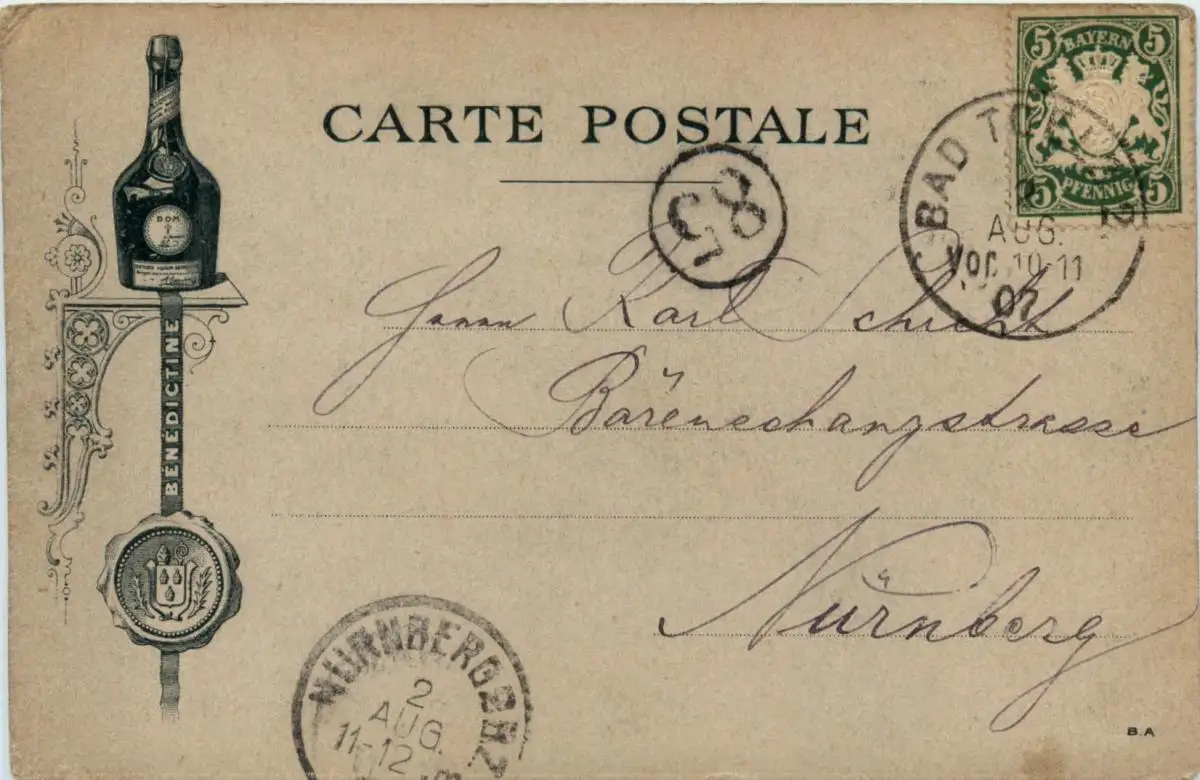 CARTE POSTALE
5 BAYERN 5
5 PFENNIG 5
BAD 2
AUG.
VOR. 10-11
07
85
DOM
BÉNÉDICTINE
Herrn Karl
Bärenschanzstrasse
Nürnberg
NÜRNBERG
2
AUG.
11-12
B.A